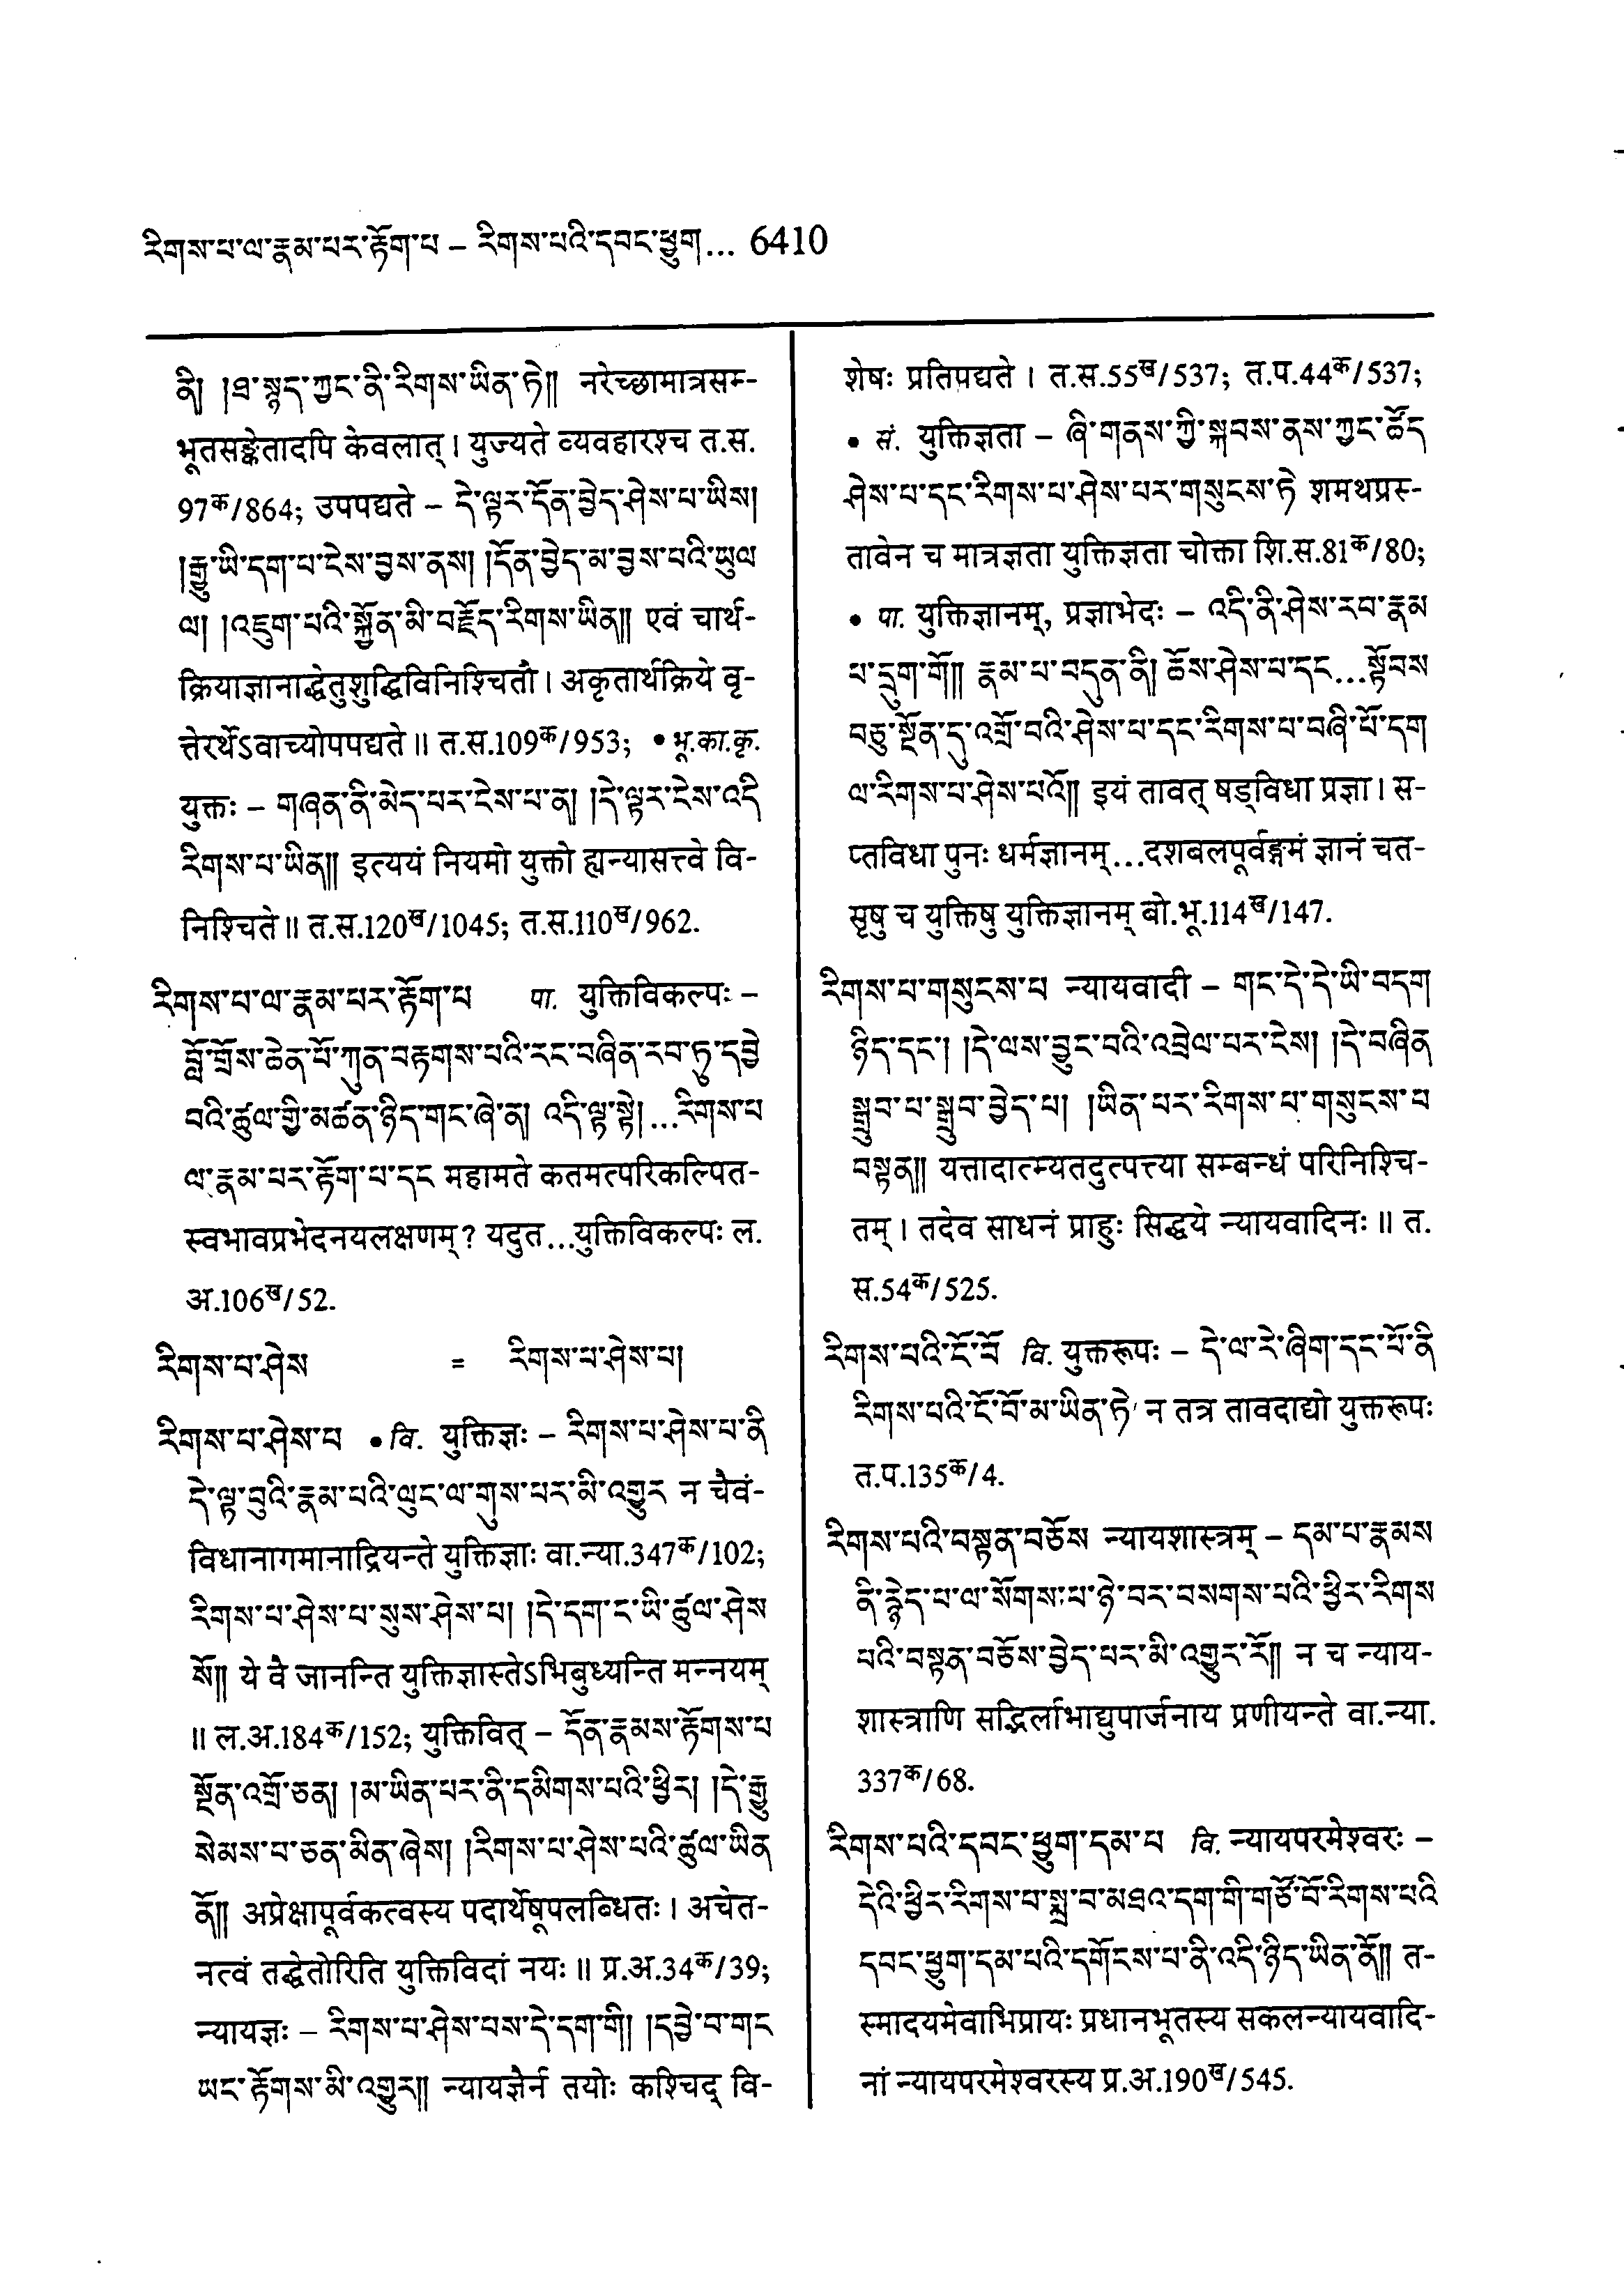 རིགས་པ་ལ་རྣམ་པར་རྟོག་པ – རིགས་པའི་དབང་ཕྱུག... 6410
ནི། །ཐ་སྙད་ཀྱང་ནི་རིགས་ཡིན་ཏེ༎ नरेच्छामात्रसम्-
भूतसङ्केतादपि केवलात् । युज्यते व्यवहारश्च त.स.
97क/864; उपपद्यते – དེ་ལྟར་དོན་བྱེད་ཤེས་པ་ཡིས།
།རྒྱུ་ཡི་དག་པ་ངེས་བྱས་ནས། །དོན་བྱེད་མ་བྱས་པའི་ཡུལ
ལ། །འཇུག་པའི་སྐྱོན་མི་བརྗོད་རིགས་ཡིན༎ एवं चार्थ-
क्रियाज्ञानाद्धेतुशुद्धिविनिश्चितौ । अकृतार्थक्रिये वृ-
त्तेरर्थेऽवाच्योपपद्यते ॥ त.स.109क/953; • भू.का.कृ.
युक्तः – གཞན་ནི་མེད་པར་ངེས་པ་ན། །དེ་ལྟར་ངེས་འདི
རིགས་པ་ཡིན༎ इत्ययं नियमो युक्तो ह्यन्यासत्त्वे वि-
निश्चिते ॥ त.स.120ख/1045; त.स.110ख/962.
རིགས་པ་ལ་རྣམ་པར་རྟོག་པ पा. युक्तिविकल्पः –
བློ་གྲོས་ཆེན་པོ་ཀུན་བརྟགས་པའི་རང་བཞིན་རབ་ཏུ་དབྱེ
བའི་ཚུལ་གྱི་མཚན་ཉིད་གང་ཞེ་ན། འདི་ལྟ་སྟེ།...རིགས་པ
ལ་རྣམ་པར་རྟོག་པ་དང महामते कतमत्परिकल्पित-
स्वभावप्रभेदनयलक्षणम्? यदुत...युक्तिविकल्पः ल.
अ.106ख/52.
རིགས་པ་ཤེས = རིགས་པ་ཤེས་པ།
རིགས་པ་ཤེས་པ • वि. युक्तिज्ञः – རིགས་པ་ཤེས་པ་ནི
དེ་ལྟ་བུའི་རྣམ་པའི་ལུང་ལ་གུས་པར་མི་འགྱུར न चैवं-
विधानागमानाद्रियन्ते युक्तिज्ञाः वा.न्या.347क/102;
རིགས་པ་ཤེས་པ་སུས་ཤེས་པ། །དེ་དག་ང་ཡི་ཚུལ་ཤེས
སོ༎ ये वै जानन्ति युक्तिज्ञास्तेऽभिबुध्यन्ति मन्नयम्
॥ ल.अ.184क/152; युक्तिवित् – དོན་རྣམས་རྟོགས་པ
སྔོན་འགྲོ་ཅན། །མ་ཡིན་པར་ནི་དམིགས་པའི་ཕྱིར། །དེ་རྒྱུ
སེམས་པ་ཅན་མིན་ཞེས། །རིགས་པ་ཤེས་པའི་ཚུལ་ཡིན
ནོ༎ अप्रेक्षापूर्वकत्वस्य पदार्थेषूपलब्धितः । अचेत-
नत्वं तद्धेतोरिति युक्तिविदां नयः ॥ प्र.अ.34क/39;
न्यायज्ञः – རིགས་པ་ཤེས་པས་དེ་དག་གི། །དབྱེ་བ་གང
ཡང་རྟོགས་མི་འགྱུར༎ न्यायज्ञैर्न तयोः कश्चिद् वि-
शेषः प्रतिपद्यते । त.स.55ख/537; त.प.44क/537;
• सं. युक्तिज्ञता – ཞི་གནས་ཀྱི་སྐབས་ནས་ཀྱང་ཚོད
ཤེས་པ་དང་རིགས་པ་ཤེས་པར་གསུངས་ཏེ शमथप्रस्-
तावेन च मात्रज्ञता युक्तिज्ञता चोक्ता शि.स.81क/80;
• पा. युक्तिज्ञानम्, प्रज्ञाभेदः – འདི་ནི་ཤེས་རབ་རྣམ
པ་དྲུག་གོ༎ རྣམ་པ་བདུན་ནི། ཆོས་ཤེས་པ་དང...སྟོབས
བཅུ་སྔོན་དུ་འགྲོ་བའི་ཤེས་པ་དང་རིགས་པ་བཞི་པོ་དག
ལ་རིགས་པ་ཤེས་པའོ༎ इयं तावत् षड्विधा प्रज्ञा । स-
प्तविधा पुनः धर्मज्ञानम्...दशबलपूर्वङ्गमं ज्ञानं चत-
सृषु च युक्तिषु युक्तिज्ञानम् बो.भू.114ख/147.
རིགས་པ་གསུངས་པ न्यायवादी – གང་དེ་དེ་ཡི་བདག
ཉིད་དང༌། །དེ་ལས་བྱུང་བའི་འབྲེལ་པར་ངེས། །དེ་བཞིན
སྒྲུབ་པ་སྒྲུབ་བྱེད་པ། །ཡིན་པར་རིགས་པ་གསུངས་པ
བསྟན༎ यत्तादात्म्यतदुत्पत्त्या सम्बन्धं परिनिश्चि-
तम् । तदेव साधनं प्राहुः सिद्धये न्यायवादिनः ॥ त.
स.54क/525.
རིགས་པའི་ངོ་བོ वि. युक्तरूपः – དེ་ལ་རེ་ཞིག་དང་པོ་ནི
རིགས་པའི་ངོ་བོ་མ་ཡིན་ཏེ न तत्र तावदाद्यो युक्तरूपः
त.प.135क/4.
རིགས་པའི་བསྟན་བཅོས न्यायशास्त्रम् – དམ་པ་རྣམས
ནི་རྙེད་པ་ལ་སོགས་པ་ཉེ་བར་བསགས་པའི་ཕྱིར་རིགས
པའི་བསྟན་བཅོས་བྱེད་པར་མི་འགྱུར་རོ༎ न च न्याय-
शास्त्राणि सद्भिर्लाभाद्युपार्जनाय प्रणीयन्ते वा.न्या.
337क/68.
རིགས་པའི་དབང་ཕྱུག་དམ་པ वि. न्यायपरमेश्वरः –
དེའི་ཕྱིར་རིགས་པ་སྨྲ་བ་མཐའ་དག་གི་གཙོ་བོ་རིགས་པའི
དབང་ཕྱུག་དམ་པའི་དགོངས་པ་ནི་འདི་ཉིད་ཡིན་ནོ༎ त-
स्मादयमेवाभिप्रायः प्रधानभूतस्य सकलन्यायवादि-
नां न्यायपरमेश्वरस्य प्र.अ.190ख/545.